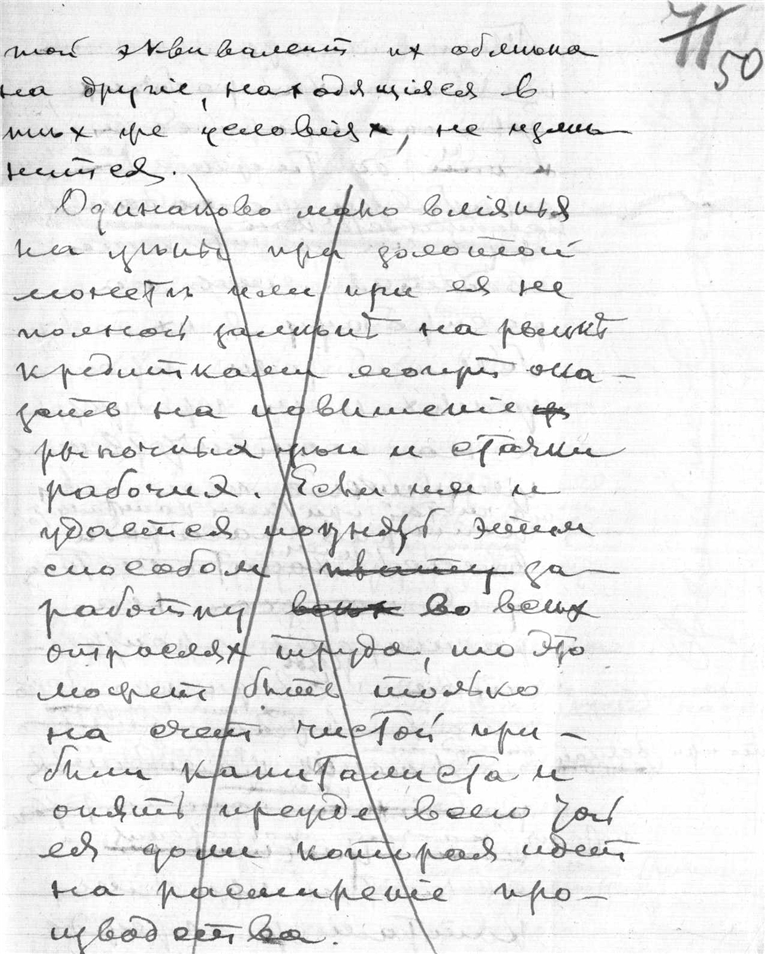 71 50
той эквивалент их обмѣна
на другіе, находящіяся в
тѣх же условіях, не измѣ-
нится.
Одинаково мало вліянья
на цѣны при золотой
монетѣ или при ея не
полной замѣнѣ на рынкѣ
кредитками могут ока-
зать на повышеніе
рыночных цѣн и стачки
рабочих. Если им и
удается поднять этим
способом плату за
работну всѣх во всѣх
отраслях труда, то это
может быть только
на счет чистой при-
были капиталиста и
опять прежде всего той
ея доли которая идет
на расширеніе про-
изводства.